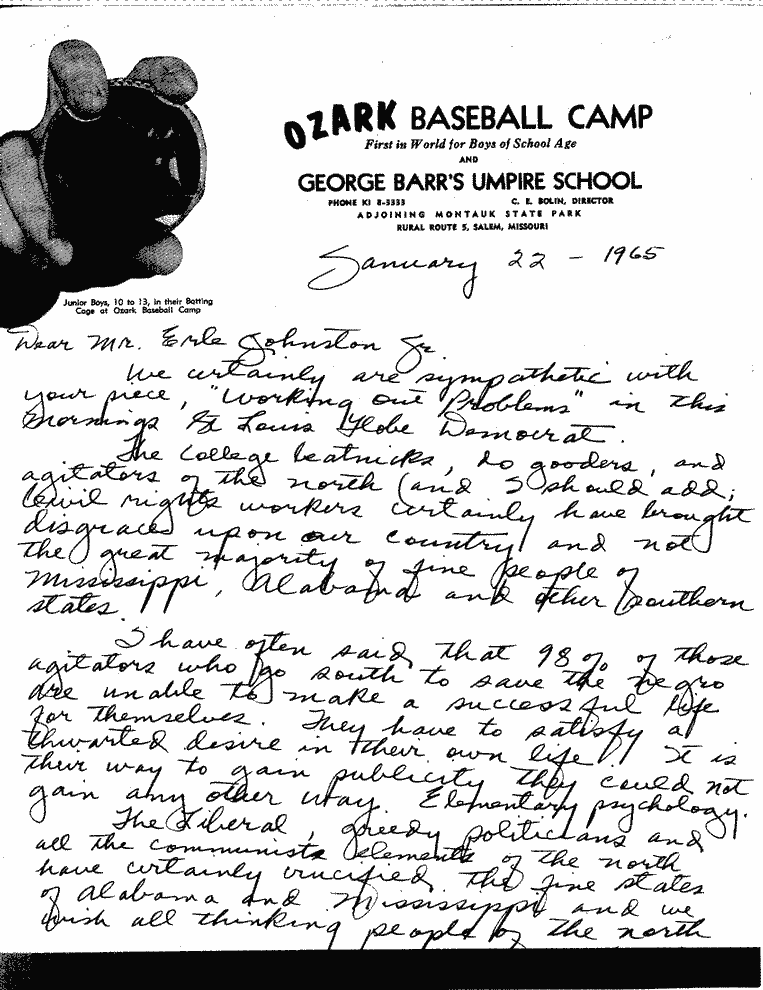 OZARK BASEBALL CAMP
First in World for Boys of School Age
AND
GEORGE BARR'S UMPIRE SCHOOL
PHONE KI 8-3333 C. E. BOLIN, DIRECTOR
ADJOINING MONTAUK STATE PARK
RURAL ROUTE 5, SALEM, MISSOURI
January 22 - 1965
Junior Boys, 10 to 13, in their Batting
Cage at Ozark Baseball Camp
Dear Mr. Erle Johnston Jr.
We certainly are sympathetic with
your piece, "Working out Problems" in this
mornings St Louis Globe Democrat.
The college beatnicks, do gooders, and
agitators of the north (and I should add;
Civil rights workers certainly have brought
disgraces upon our country and not
the great majority of fine people of
Mississippi, Alabama and other Southern
states.
I have often said that 98% of those
agitators who go south to save the negro
are unable to make a successful life
for themselves. They have to satisfy a
thwarted desire in their own life. It is
their way to gain publicity they could not
gain any other way. Elementary psychology.
The Liberal, greedy politicians and
all the communists elements of the north
have certainly crucified the fine states
of Alabama and Mississippi and we
wish all thinking people of the north